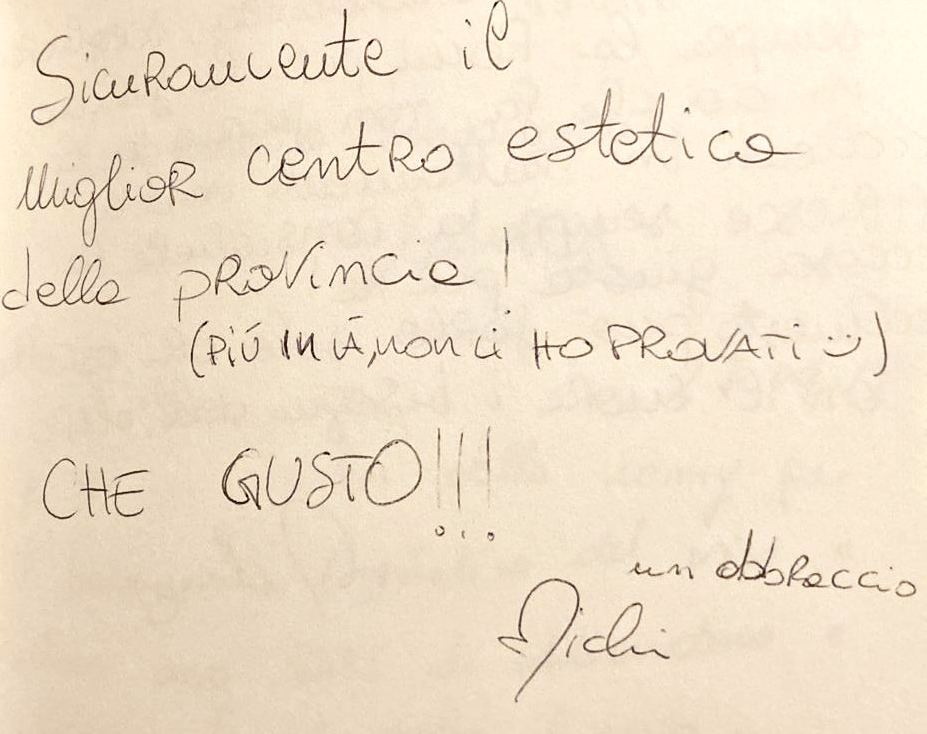 Sicuramente il
miglior centro estetico
della provincia!
(PIÚ IN LÀ, NON LI HO PROVATI :))
CHE GUSTO!!!
un abbraccio